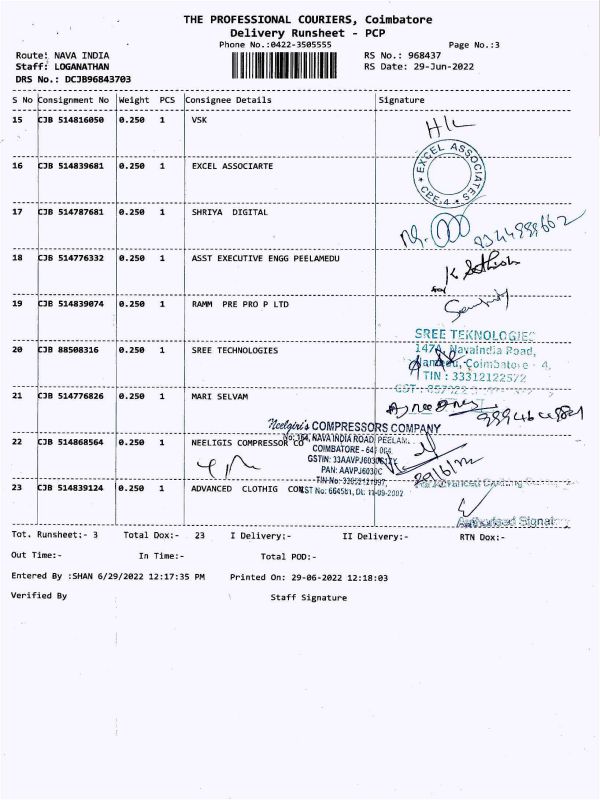 THE PROFESSIONAL COURIERS, Coimbatore
Delivery Runsheet - PCP
Phone No.:0422-3505555 Page No.:3
Route: NAVA INDIA RS No.: 968437
Staff: LOGANATHAN RS Date: 29-Jun-2022
DRS No.: DCJB96843703
S No Consignment No Weight PCS Consignee Details Signature
15 CJB 514816050 0.250 1 VSK
16 CJB 514839681 0.250 1 EXCEL ASSOCIARTE
EXCEL ASSOCIATES
CBE-4
17 CJB 514787681 0.250 1 SHRIYA DIGITAL
18 CJB 514776332 0.250 1 ASST EXECUTIVE ENGG PEELAMEDU
K Sathish
19 CJB 514839074 0.250 1 RAMM PRE PRO P LTD
SREE TEKNOLOGIES
147A, Navaindia Road,
20 CJB 88508316 0.250 1 SREE TECHNOLOGIES
Coimbatore - 4,
TIN : 33312122572
21 CJB 514776826 0.250 1 MARI SELVAM
Neelgiri's COMPRESSORS COMPANY
22 CJB 514868564 0.250 1 NEELIGIS COMPRESSOR CO
NAVA INDIA ROAD, PEELAM
COIMBATORE - 641 004.
PAN: AAVPJ6030C
29/6/22
23 CJB 514839124 0.250 1 ADVANCED CLOTHIG CON
CST No: 664581, Dt: 11-09-2002
Authorised Signat
Tot. Runsheet:- 3 Total Dox:- 23 I Delivery:- II Delivery:- RTN Dox:-
Out Time:- In Time:- Total POD:-
Entered By :SHAN 6/29/2022 12:17:35 PM Printed On: 29-06-2022 12:18:03
Verified By Staff Signature